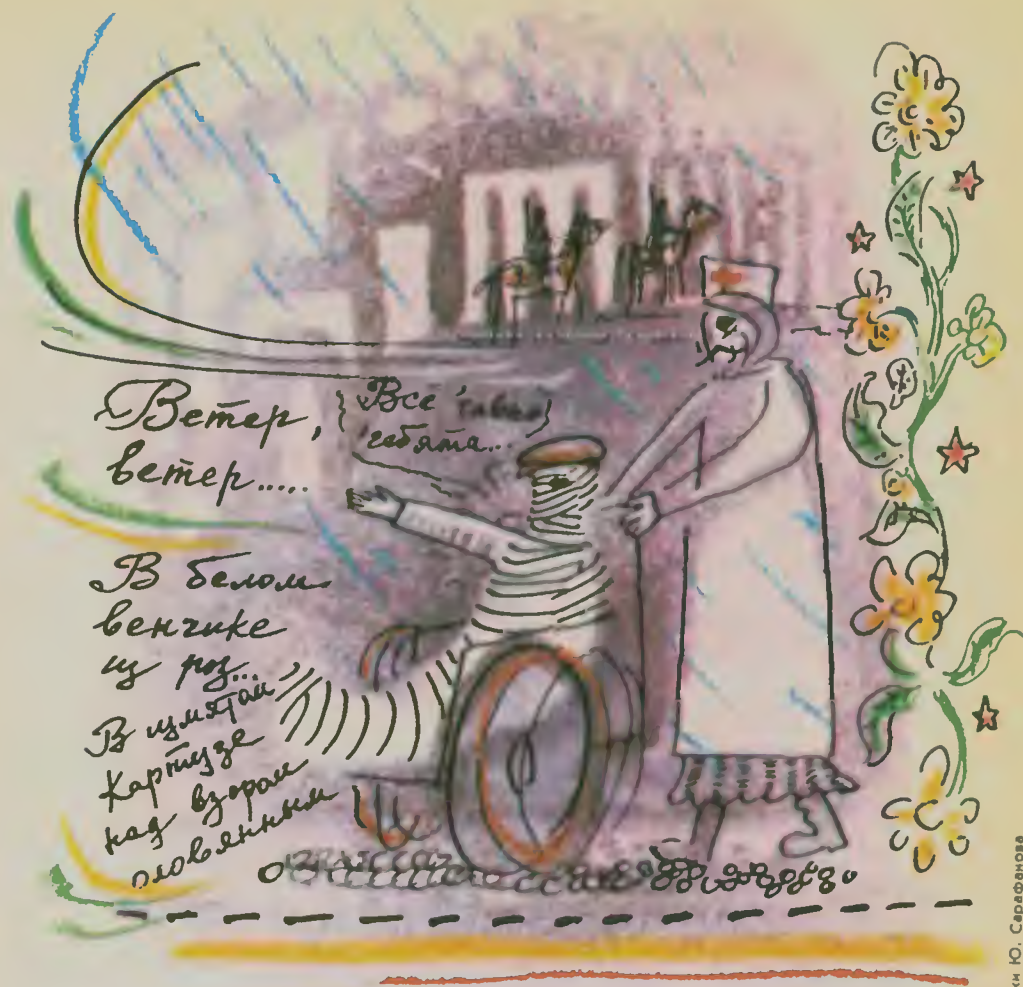 Ветер,
ветер.....
Всё
гебята...
В белом
венчике
из роз...
В измятом
Картузе
над взором
оловянным
ки Ю. Сарафанова